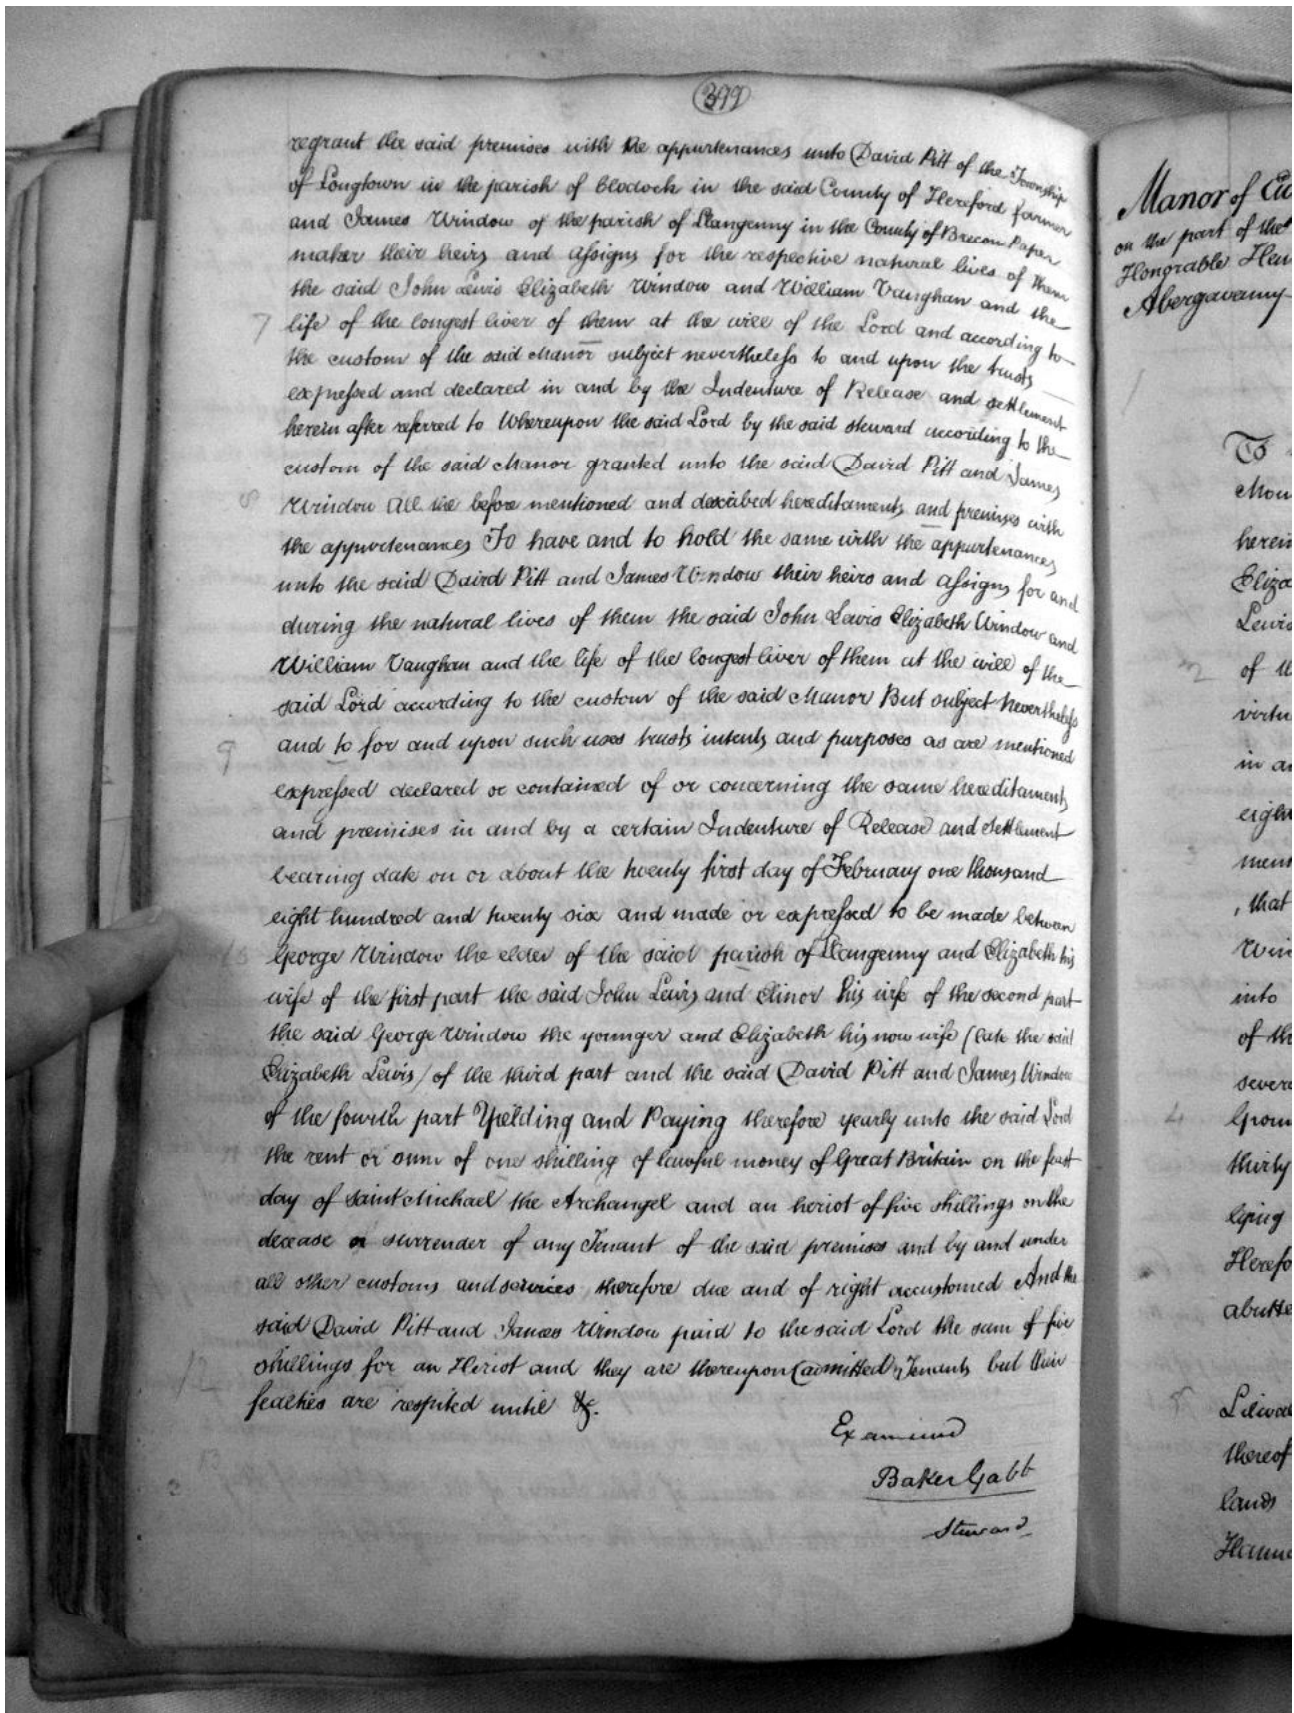 399
regrant the said premises with the appurtenances unto David Pitt of the Township
of Longtown in the parish of Clodock in the said County of Hereford farmer
and James Window of the parish of Llangenny in the County of Brecon Paper
maker their heirs and assigns for the respective natural lives of them
the said John Lewis Elizabeth Window and William Vaughan and the
7 life of the longest liver of them at the will of the Lord and according to
the custom of the said Manor subject nevertheless to and upon the trusts
expressed and declared in and by the Indenture of Release and settlement
herein after referred to Whereupon the said Lord by the said steward according to the
custom of the said Manor granted unto the said David Pitt and James
8 Window All the before mentioned and described hereditaments and premises with
the appurtenances To have and to hold the same with the appurtenances
unto the said David Pitt and James Window their heirs and assigns for and
during the natural lives of them the said John Lewis Elizabeth Window and
William Vaughan and the life of the longest liver of them at the will of the
said Lord according to the custom of the said Manor But subject Nevertheless
9 and to for and upon such uses trusts intents and purposes as are mentioned
expressed declared or contained of or concerning the same hereditaments
and premises in and by a certain Indenture of Release and settlement
bearing date on or about the twenty first day of February one thousand
eight hundred and twenty six and made or expressed to be made between
George Window the elder of the said parish of Llangenny and Elizabeth his
wife of the first part the said John Lewis and Elinor his wife of the second part
the said George Window the younger and Elizabeth his now wife (late the said
Elizabeth Lewis) of the third part and the said David Pitt and James Window
of the fourth part Yeilding and Paying therefore yearly unto the said Lord
the rent or sum of one shilling of lawful money of Great Britain on the feast
day of Saint Michael the Archangel and an heriot of five shillings on the
decease or surrender of any Tenant of the said premises and by and under
all other customs and services therefore due and of right accustomed And the
said David Pitt and James Window paid to the said Lord the sum of five
12 shillings for an Heriot and they are thereupon admitted Tenants but their
fealties are respited until &c.
13
Examined
Baker Gabb
Steward
Manor of
on the part of the
Honorable
Abergavenny
To
herein
Eliza
Lewis
2 of
in
eigh
that
Win
into
of th
severa
4
thirty
Herefo
abutte
5
thereof
lands